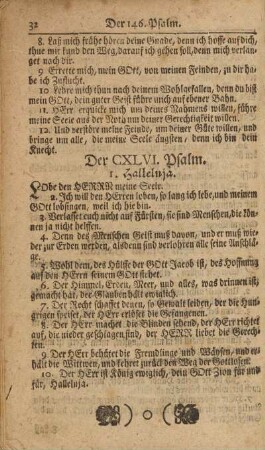 32 Der 146. Psalm.
8. Laß mich frühe hören deine Gnade, denn ich hoffe auf dich,
thue mir kund den Weg, darauf ich gehen soll, denn mich verlan-
get nach dir.
9 Errette mich, mein GOtt, von meinen Feinden, zu dir ha-
be ich Zuflucht.
10 Lehre mich thun nach deinem Wohlgefallen, denn du bist
mein GOtt, dein guter Geist führe mich auf ebener Bahn.
11. HErr, erquicke mich um deines Nahmens willen, führe
meine Seele aus der Noth um deiner Gerechtigkeit willen
12. Und verstöre meine Feinde, um deiner Güte willen, und
bringe um alle, die meine Seele ängsten, denn ich bin dein
Knecht.
Der CXLVI. Psalm.
1. Halleluja.
Lobe den HERRN meine Seele.
2. Ich will den HErren loben, so lang ich lebe, und meinem
GOtt lobsingen, weil ich hie bin.
3. Verlasset euch nicht auf Fürsten, sie sind Menschen, die kön-
nen ja nicht helffen.
4. Denn des Menschen Geist muß davon, und er muß wie-
der zur Erden werden, alsdenn sind verlohren alle seine Anschlä-
ge.
5. Wohl dem, des Hülffe der GOtt Jacob ist, des Hoffnung
auf den HErrn seinem GOtt stehet.
6. Der Himmel, Erden, Meer, und alles, was drinnen ist,
gemacht hat, der Glauben hält ewiglich.
7. Der Recht schaffet denen, so Gewalt leiden, der die Hun-
grigen speiset, der HErr erlöset die Gefangenen.
8. Der HErr machet die Blinden sehend, der HErr richtet
auf, die nieder geschlagen sind, der HERR liebet die Gerech-
ten.
9 Der HErr behütet die Fremdlinge und Wäysen, und er-
hält die Wittwen, und kehret zurück den Weg der Gottlosen.
10. Der HErr ist König ewiglich, dein GOtt Zion für und
für, Halleluja.